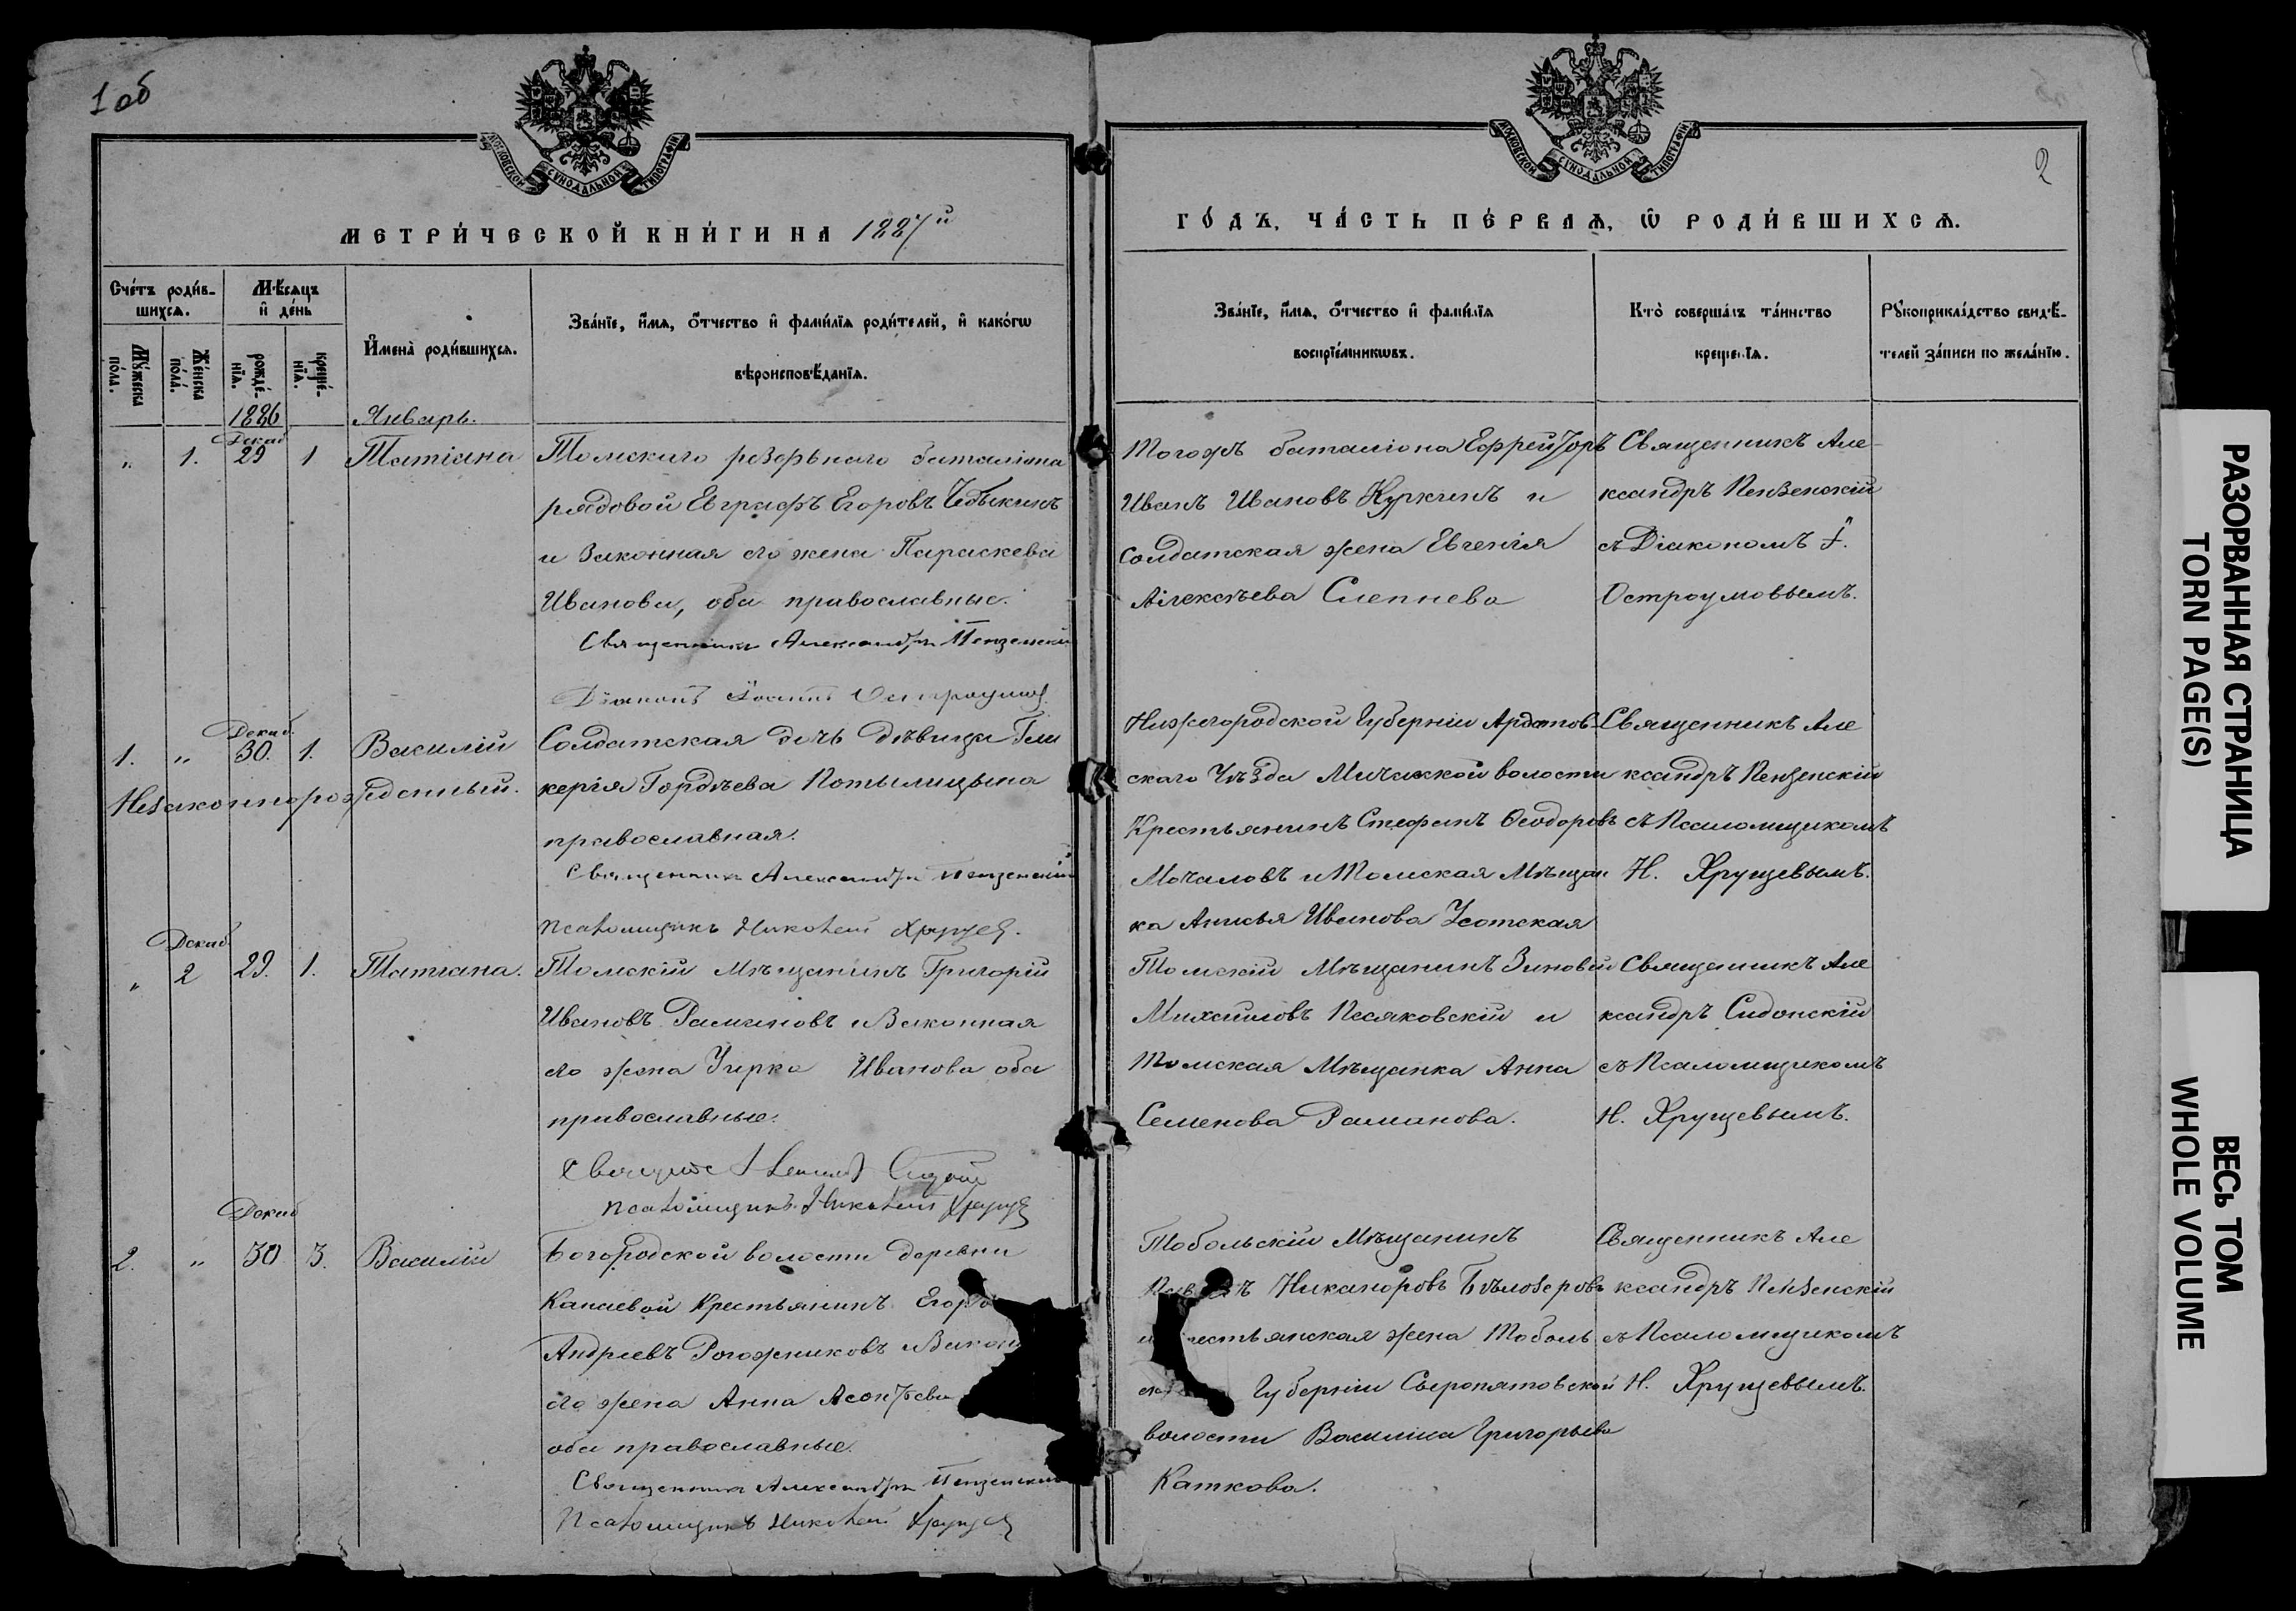 1 об
МОСКОВСКОЙ СѴНОДАЛЬНОЙ ТИПОГРАФІИ
МЕТРИ́ЧЕСКОЙ КНИ́ГИ НА 1887й
Сче́тъ роди́в-
шихсѧ.
Мѣ́сѧцъ
и҆ де́нь
И҆мена̀ роди́вшихсѧ.
Зва́нїе, и҆́мѧ, о҆́тчество и҆ фами́лїѧ роди́телей, и҆ како́гѡ
вѣроисповѣ́данїѧ.
Мꙋ́жеска
по́ла.
Же́нска
по́ла.
рожде́-
нїѧ.
креще́-
нїѧ.
1886 Январь.
Декаб
" 1. 29 1 Татіана
Томскаго резервнаго баталіона
рядовой Евграфъ Егоровъ
и законная его жена Параскева
Иванова, оба православные.
Священникъ Александръ Пензенскій
Діаконъ Іоаннъ Остроумов
Декаб.
1. " 30. 1. Василій
Незаконнорожденный.
Солдатская дочь дѣвица Гли
керія Гордѣева Потылицына
православная.
Священникъ Александръ Пензенскій
Псаломщикъ Николай Хрущев.
Декаб
" 2 29. 1. Татіана.
Томскій Мѣщанинъ Григорій
Ивановъ Рамановъ и законная
его жена Ирка Иванова оба
православные.
Псаломщикъ Николай Хрущев
Декаб
2. " 30 3. Василій
Богородской волости деревни
Канаевой Крестьянинъ Егоръ
Андреевъ Рогожниковъ и закон
его жена Анна Леонтьева
оба православные.
Священникъ Александръ Пензенскій
Псаломщикъ Николай Хрущев
2
МОСКОВСКОЙ СѴНОДАЛЬНОЙ ТИПОГРАФІИ
ГО́ДЪ, ЧА́СТЬ ПЕ́РВАѦ, Ѡ҆ РОДИ́ВШИХСѦ.
Зва́нїе, и҆́мѧ, о҆́тчество и҆ фами́лїѧ
воспрїе́мникѡвъ.
Кто̀ соверша́лъ та́инство
креще́нїѧ.
Рꙋкоприкла́дство свидѣ́-
телей за́писи по жела́нїю.
Тогожъ баталіона Ефрейторъ
Иванъ Ивановъ Куркинъ и
солдатская жена Евгенія
Алексѣева Слепнева
Священникъ Але-
ксандръ Пензенскій
съ Діакономъ І.
Остроумовымъ.
Нижегородской Губерніи Ардатов
скаго Уѣзда Личадской волости
Крестьянинъ Стефанъ Ѳеодоровъ
Мочаловъ и Томская Мѣщан
ка Анисья Иванова Усотская
Священникъ Але
ксандръ Пензенскій
съ Псаломщикомъ
Н. Хрущевымъ.
Томскій Мѣщанинъ Зиновій
Михаиловъ Песяковскій и
Томская Мѣщанка Анна
Семенова Раманова.
Священникъ Але
ксандръ Сидонскій
съ Псаломщикомъ
Н. Хрущевымъ.
Тобольскій Мѣщанинъ
Никаноровъ Бѣлозеровъ
жена Тоболь
Губерніи Сыропятовской
волости Василиса Григорьева
Каткова.
Священникъ Але
ксандръ Пензенскій
съ Псаломщикомъ
Н. Хрущевымъ.
РАЗОРВАННАЯ СТРАНИЦА
TORN PAGE(S)
ВЕСЬ ТОМ
WHOLE VOLUME